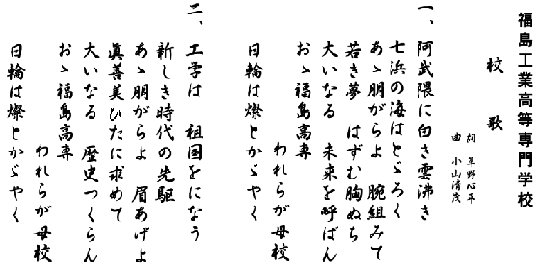 福島工業高等専門学校
校歌
詞 草野心平
曲 小山清茂
一、阿武隈に白き雲沸き
七浜の海はとゞろく
あゝ朋がらよ 腕組みて
若き夢 はずむ胸ぬち
大いなる 未来を呼ばん
おゝ福島高専
われらが母校
日輪は燦とかゞやく
二、工学は 祖国をになう
新しき時代の先駆
あゝ朋がらよ 眉あげよ
眞善美ひたに求めて
大いなる 歴史つくらん
おゝ福島高専
われらが母校
日輪は燦とかゞやく